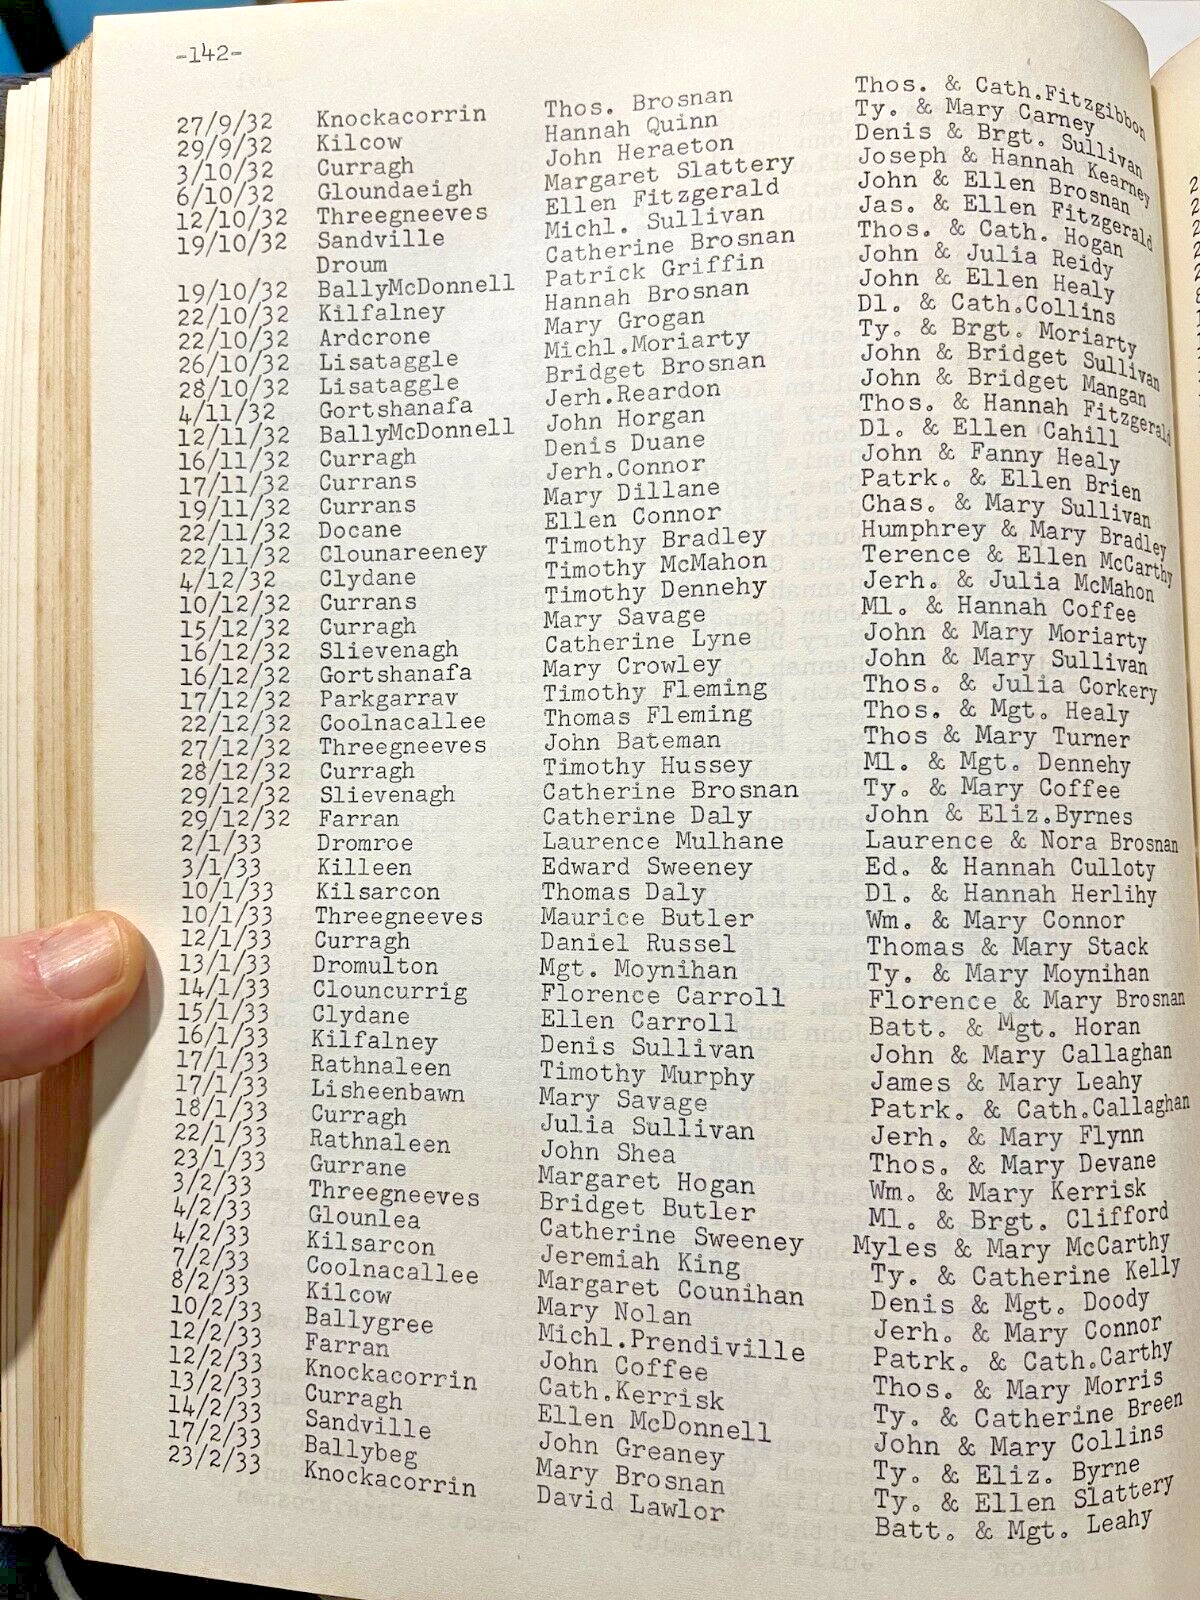 -142-
27/9/32 Knockacorrin Thos. Brosnan Thos. & Cath.Fitzgibbon
29/9/32 Kilcow Hannah Quinn Ty. & Mary Carney
3/10/32 Curragh John Heraeton Denis & Brgt. Sullivan
6/10/32 Gloundaeigh Margaret Slattery Joseph & Hannah Kearney
12/10/32 Threegneeves Ellen Fitzgerald John & Ellen Brosnan
19/10/32 Sandville Michl. Sullivan Jas. & Ellen Fitzgerald
Droum Catherine Brosnan Thos. & Cath. Hogan
19/10/32 BallyMcDonnell Patrick Griffin John & Julia Reidy
22/10/32 Kilfalney Hannah Brosnan John & Ellen Healy
22/10/32 Ardcrone Mary Grogan Dl. & Cath.Collins
26/10/32 Lisataggle Michl.Moriarty Ty. & Brgt. Moriarty
28/10/32 Lisataggle Bridget Brosnan John & Bridget Sullivan
4/11/32 Gortshanafa Jerh.Reardon John & Bridget Mangan
12/11/32 BallyMcDonnell John Horgan Thos. & Hannah Fitzgerald
16/11/32 Curragh Denis Duane Dl. & Ellen Cahill
17/11/32 Currans Jerh.Connor John & Fanny Healy
19/11/32 Currans Mary Dillane Patrk. & Ellen Brien
22/11/32 Docane Ellen Connor Chas. & Mary Sullivan
22/11/32 Clounareeney Timothy Bradley Humphrey & Mary Bradley
4/12/32 Clydane Timothy McMahon Terence & Ellen McCarthy
10/12/32 Currans Timothy Dennehy Jerh. & Julia McMahon
15/12/32 Curragh Mary Savage Ml. & Hannah Coffee
16/12/32 Slievenagh Catherine Lyne John & Mary Moriarty
16/12/32 Gortshanafa Mary Crowley John & Mary Sullivan
17/12/32 Parkgarrav Timothy Fleming Thos. & Julia Corkery
22/12/32 Coolnacallee Thomas Fleming Thos. & Mgt. Healy
27/12/32 Threegneeves John Bateman Thos & Mary Turner
28/12/32 Curragh Timothy Hussey Ml. & Mgt. Dennehy
29/12/32 Slievenagh Catherine Brosnan Ty. & Mary Coffee
29/12/32 Farran Catherine Daly John & Eliz.Byrnes
2/1/33 Dromroe Laurence Mulhane Laurence & Nora Brosnan
3/1/33 Killeen Edward Sweeney Ed. & Hannah Culloty
10/1/33 Kilsarcon Thomas Daly Dl. & Hannah Herlihy
10/1/33 Threegneeves Maurice Butler Wm. & Mary Connor
12/1/33 Curragh Daniel Russel Thomas & Mary Stack
13/1/33 Dromulton Mgt. Moynihan Ty. & Mary Moynihan
14/1/33 Clouncurrig Florence Carroll Florence & Mary Brosnan
15/1/33 Clydane Ellen Carroll Batt. & Mgt. Horan
16/1/33 Kilfalney Denis Sullivan John & Mary Callaghan
17/1/33 Rathnaleen Timothy Murphy James & Mary Leahy
17/1/33 Lisheenbawn Mary Savage Patrk. & Cath.Callaghan
18/1/33 Curragh Julia Sullivan Jerh. & Mary Flynn
22/1/33 Rathnaleen John Shea Thos. & Mary Devane
23/1/33 Gurrane Margaret Hogan Wm. & Mary Kerrisk
3/2/33 Threegneeves Bridget Butler Ml. & Brgt. Clifford
4/2/33 Glounlea Catherine Sweeney Myles & Mary McCarthy
4/2/33 Kilsarcon Jeremiah King Ty. & Catherine Kelly
7/2/33 Coolnacallee Margaret Counihan Denis & Mgt. Doody
8/2/33 Kilcow Mary Nolan Jerh. & Mary Connor
10/2/33 Ballygree Michl.Prendiville Patrk. & Cath.Carthy
12/2/33 Farran John Coffee Thos. & Mary Morris
12/2/33 Knockacorrin Cath.Kerrisk Ty. & Catherine Breen
13/2/33 Curragh Ellen McDonnell John & Mary Collins
14/2/33 Sandville John Greaney Ty. & Eliz. Byrne
17/2/33 Ballybeg Mary Brosnan Ty. & Ellen Slattery
23/2/33 Knockacorrin David Lawlor Batt. & Mgt. Leahy